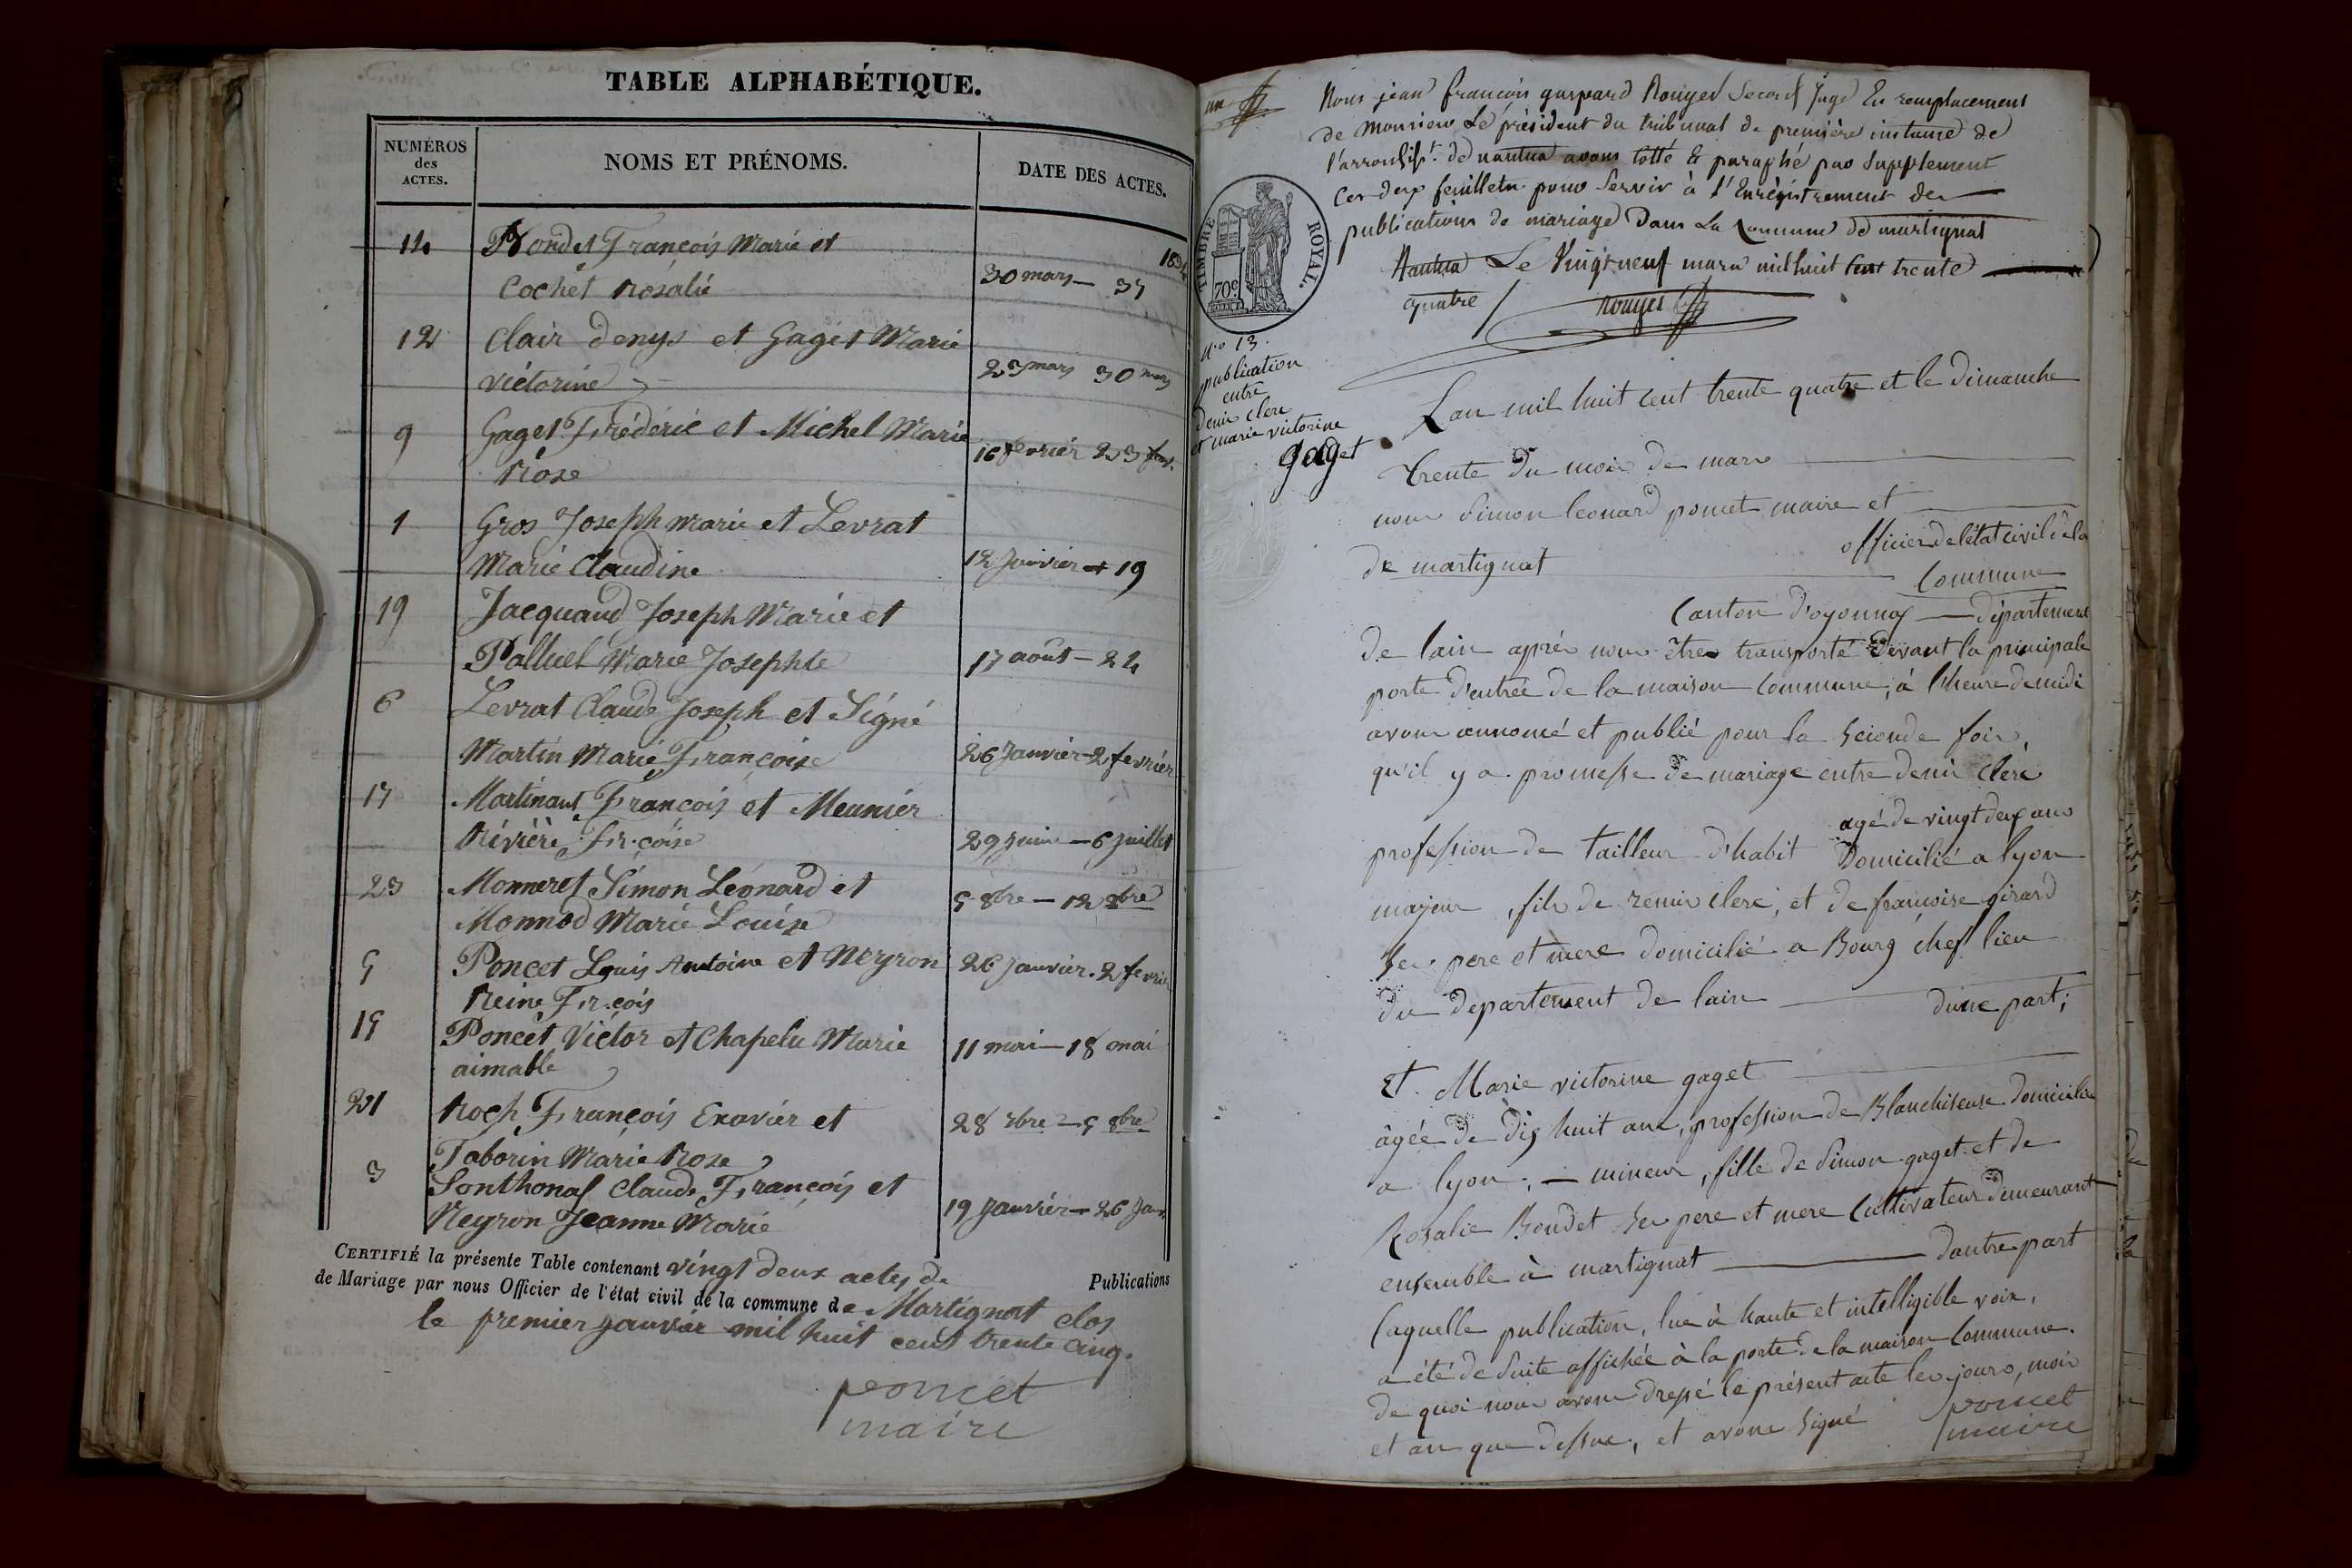 TABLE ALPHABÉTIQUE.
NUMÉROS
des
ACTES.
NOMS ET PRÉNOMS.
DATE DES ACTES.
14 Bondet François Marie et
1834
Cochet Rosalie 30 mars —
12 Clair denys et Gaget Marie
victorine 23 mars 30 mars
9 Gaget Frédéric et Michel Marie
Rose 16 fevrier 23 fev.
1 Gros Joseph marie et Levrat
Marie Claudine 12 Janvier et 19
19 Jacquand Joseph Marie et
Palluel Marie Josephte 17 août — 24
6 Levrat Claude Joseph et Signé
Martin Marie Françoise 26 Janvier — 2 fevrier
17 Martinant François et Meunier
Rivière Fr.çoise 29 juin — 6 juillet
23 Monneret Simon Léonard et
Monnod Marie Louise 5 8bre — 12 8bre
5 Poncet Louis Antoine et Neyron 26 Janvier. 2 fevrier
Reine Fr.çois
15 Poncet Victor et Chapelu Marie 11 mai — 18 mai
aimable
21 Roch François Exavier et 28 7bre — 5 8bre
Taborin Marie Rose
3 Sonthonas Claude François et
Neyron Jeanne Marie 19 Janvier — 26 Jan.
CERTIFIÉ la présente Table contenant vingt deux actes de Publications
de Mariage par nous Officier de l'état civil de la commune de Martignat clos
le premier janvier mil huit cent trente cinq.
poncet
maire
Nous jean françois gaspard Rouyer Second Juge En remplacement
de Monsieur Le président du tribunal de première instance de
l'arrondist. de nantua avons cotté & paraphé par Supplement
Ces deux feuillets pour Servir à l'Enregistrement des
publications de mariage Dans La Commune de martignat
Nantua Le Vingt neuf mars mil huit Cent trente
quatre Rouyer
TIMBRE ROYAL.
70c
No 13.
publication
entre
Denis clerc
et marie victorine
gaget
L'an mil huit cent trente quatre et le dimanche
trente du mois de mars
nous Simon leonard poncet maire et
officier de l'état civil de la
de martignat Commune
Canton d'oyonnax — département
de lain après nous être transporté Devant la principale
porte d'entrée de la maison Commune, à l'heure de midi
avons annoncé et publié pour la seconde fois
qu'il y a promesse de mariage entre denis clerc
agé de vingt deux ans
profession de tailleur d'habit Domicilié a lyon
majeur, fils de remis clerc, et de françoise girard
ses pere et mere domicilié a Bourg chef lieu
du departement de lain d'une part;
Et Marie victorine gaget
âgée de dix huit ans, profession de Blanchiseuse domiciliée
a lyon, — mineur, fille de Simon gaget et de
Rosalie Bondet ses pere et mere Cultivateur demeurant
ensemble à martignat — dautre part
Laquelle publication, lue à haute et intelligible voix,
a été de suite affichée à la porte de la maison Commune.
de quoi nous avons dressé le présent acte les jours, mois
et an que dessus, et avons signé poncet
maire